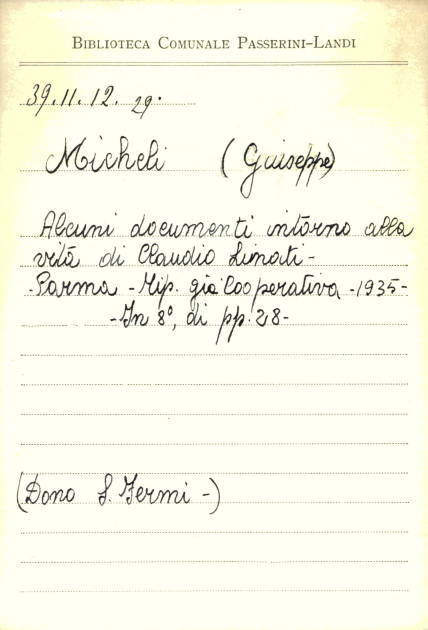 BIBLIOTECA COMUNALE PASSERINI-LANDI
39.11.12.29.
Micheli (Giuseppe)
Alcuni documenti intorno alla
vita di Claudio Linati-
-Parma - Tip. già Cooperativa -1935-
-In 8°, di pp. 28-
(Dono S. Fermi -)